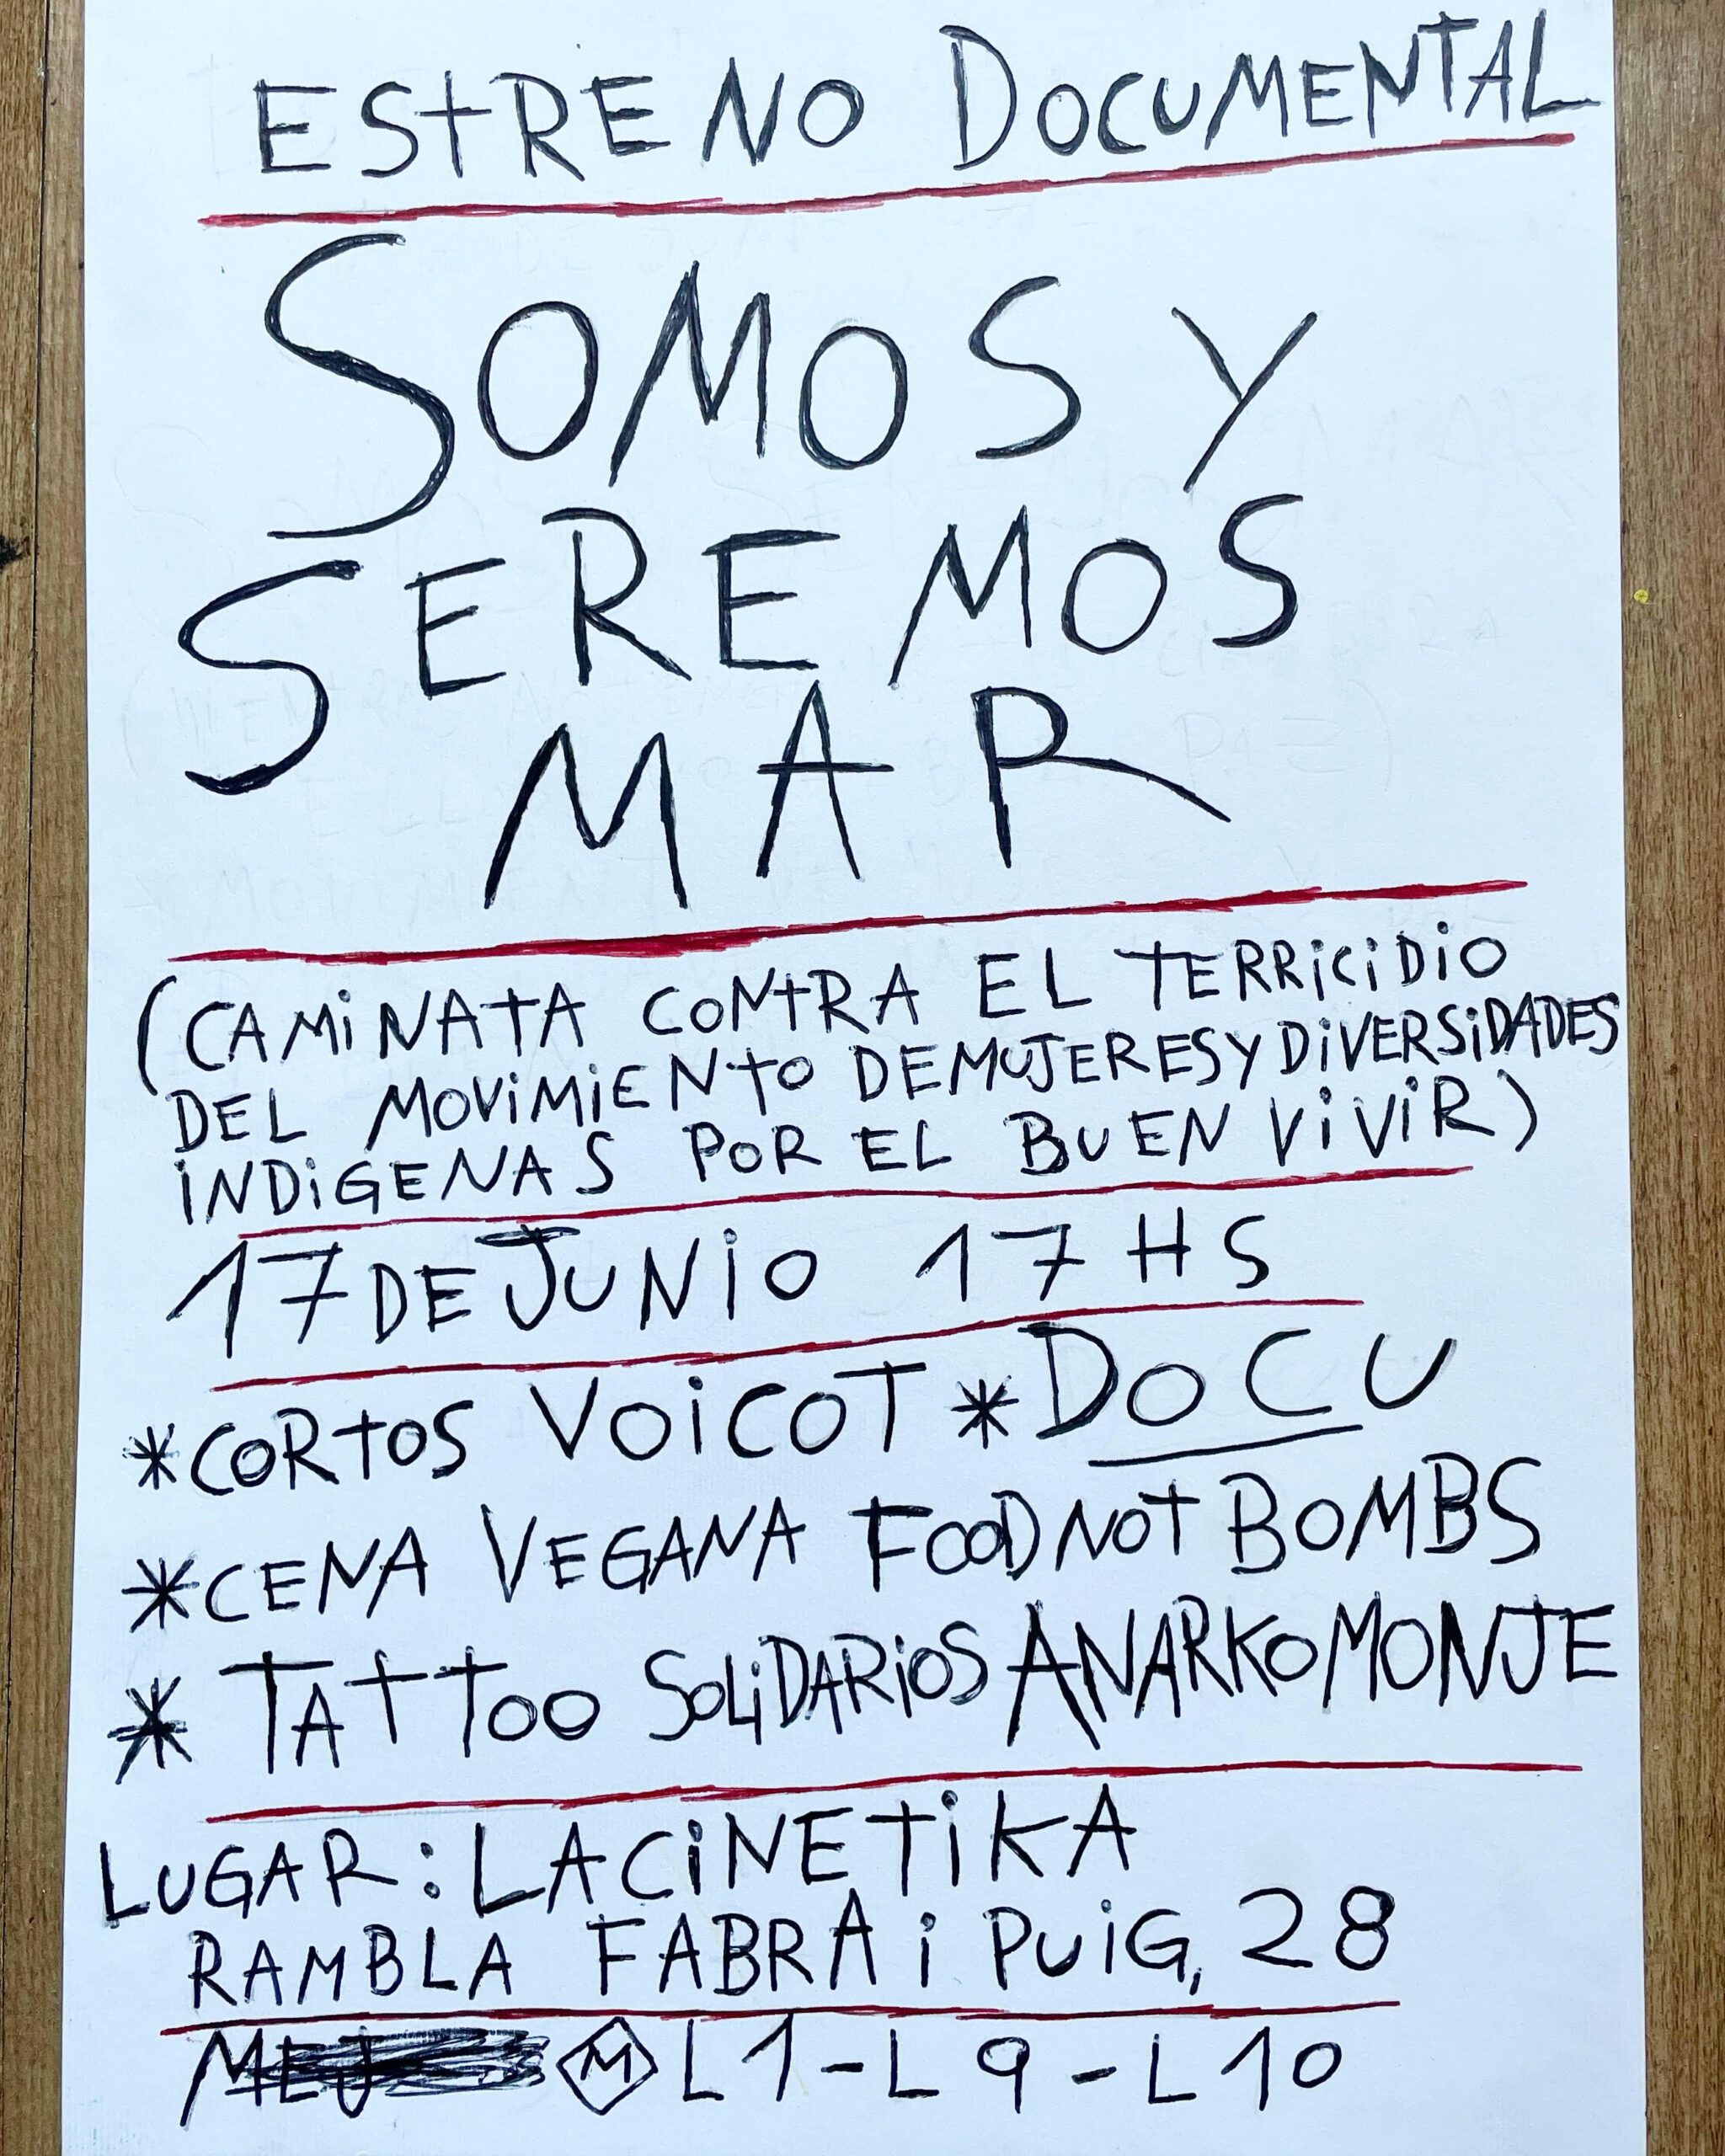 ESTRENO DOCUMENTAL
SOMOS Y
SEREMOS
MAR
(CAMiNATA CONTRA EL TERRiCiDiO
DEL MOViMiENTO DE MUJERES Y DiVERSiDADES
iNDiGENAS POR EL BUEN ViViR)
17 DE JUNiO 17 HS
*CORTOS VOiCOT *DOCU
*CENA VEGANA FOOD NOT BOMBS
* TATTOO SOLiDARiOS ANARKOMONJE
LUGAR: LACiNETiKA
RAMBLA FABRA i PUiG, 28
M L1-L9-L10